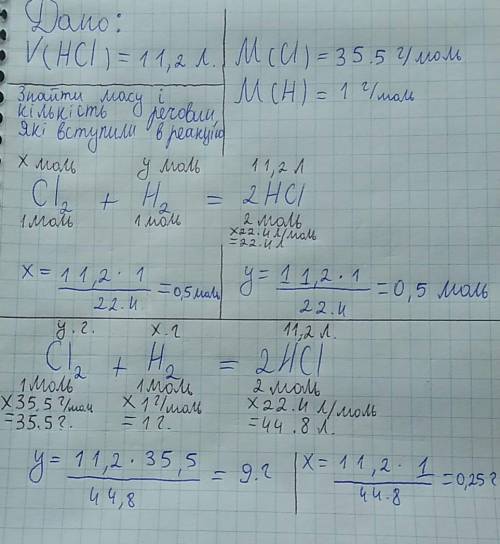 Дано:
V(HCl) = 11,2 л.
M(Cl) = 35.5 г/моль
M(H) = 1 г/моль
Знайти масу і
кількість речовин,
які вступили в реакцію
x моль y моль 11,2 л
Cl₂ + H₂ = 2HCl
1 моль 1 моль 2 моль
×22.4 л/моль
=22.4 л
x = 11,2 · 1 / 22.4 = 0,5 моль
y = 11,2 · 1 / 22.4 = 0,5 моль
y.г. x.г 11,2 л.
Cl₂ + H₂ = 2HCl
1 моль 1 моль 2 моль
×35.5 г/моль ×1 г/моль ×22.4 л/моль
=35.5 г. =1 г. =44.8 л.
y = 11,2 · 35,5 / 44,8 = 9.г
x = 11,2 · 1 / 44.8 = 0,25 г